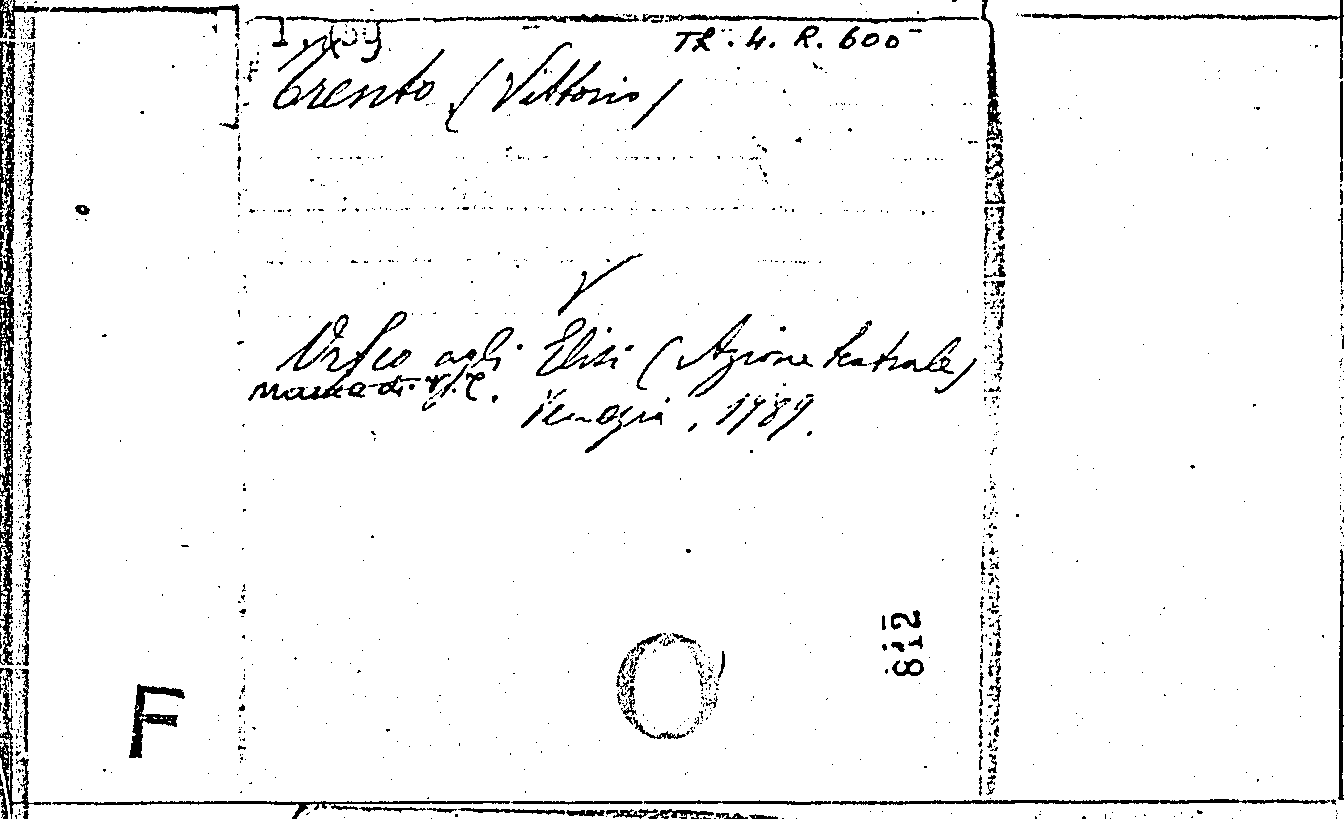 Th. 4. R. 600
Trento (Vittorio)
Orfeo agli Elisi (Azione teatrale)
Venezia, 1789.
812
F